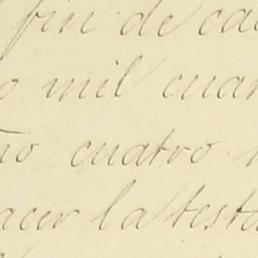 fin de ca
o mil cuar
ño cuatro.
acer la test